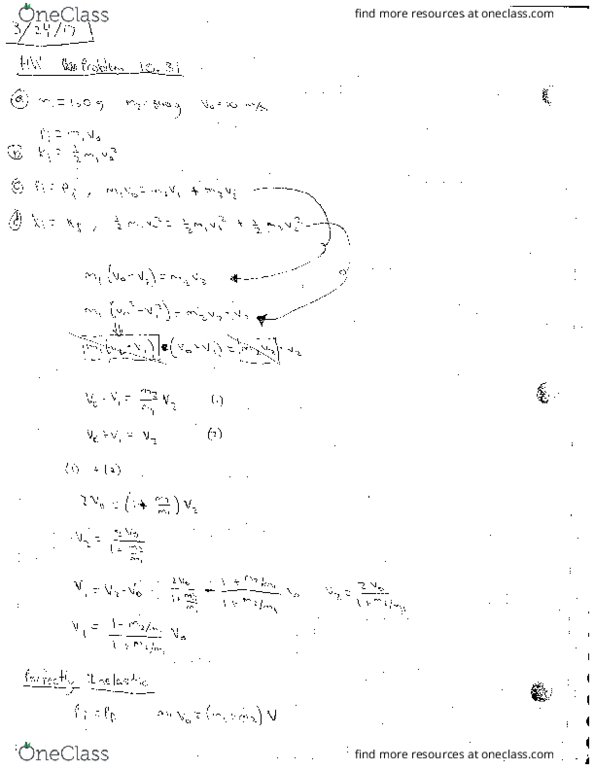 OneClass
find more resources at oneclass.com
3/24/17
HW Problem 10.31
(a) m₁ = 100 g m₂ = 300 g v₀ = m/s
Pᵢ = m₁v₀
(b) Kᵢ = ½ m₁v₀²
(c) Pᵢ = P_f , m₁v₀ = m₁v₁ + m₂v₂
(d) Kᵢ = K_f , ½ m₁v₀² = ½ m₁v₁² + ½ m₂v₂²
m₁(v₀ - v₁) = m₂v₂
m₁(v₀² - v₁²) = m₂v₂ · v₂
m₁(v₀ - v₁) · (v₀ + v₁) = m₂v₂ · v₂
v₀ - v₁ = m₂/m₁ v₂ (1)
v₀ + v₁ = v₂ (2)
(1) + (2)
2v₀ = (1 + m₂/m₁) v₂
v₂ = 2v₀/(1 + m₂/m₁)
v₁ = v₂ - v₀ = 2v₀/(1 + m₂/m₁) - (1 + m₂/m₁)/(1 + m₂/m₁) v₀ v₂ = 2v₀/(1 + m₂/m₁)
v₁ = (1 - m₂/m₁)/(1 + m₂/m₁) v₀
Perfectly Inelastic
Pᵢ = P_f m₁v₀ = (m₁ + m₂) V
OneClass
find more resources at oneclass.com